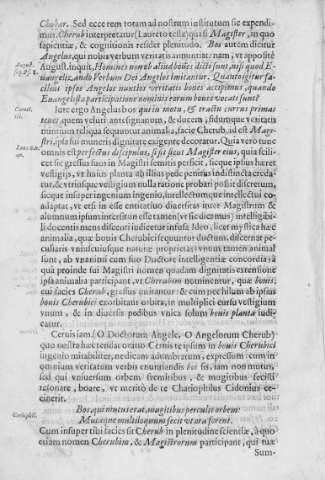 Chobar. Sed ecce rem totam ad nostrum institutum sic expendi-
mus. Cherub interpretatur (Laureto teste) quasi Magister, in quo
sapientiæ, & cognitionis residet plenitudo. Bos autem dicitur
Angelus, qui nobis verbum veritatis annuntiet: nam, vt apposite
August. inquit, Homines non ob aliud boues dicti sunt, nisi quod E-
uangelizando Verbum Dei Angelos imitantur. Quanto igitur fa-
cilius ipsos Angelos nuntios veritatis boues accipimus, quando
Euangelista participatione nominis eorum boues vocati sunt?
Iure ergo Angelus bos quasi motu, & tractu currus primus
tenet, quem veluti antesignanum, & ducem, sidumque veritatis
numium reliqua sequuntur animalia, facie Cherub, id est Magi-
stri, ipsa sui muneris dignitate exigente decoratur. Quia vero tunc
omnis est perfectus discipulus, si sit sicut Magister eius, quia scili-
cet sic gressus suos in Magistri semitis perficit, sicque ipsius hæret
vestigijs, vt huius planta ab illius pede penitus indistincta creda-
tur, & vtriusque vestigium nulla ratione probari possit discretum,
sicque insuper ingenium ingenio, intellectumque intellectui co-
adaptat, vt etsi in esse entitatiuo diuersitas inter Magistrum &
alumnum ipsum intersit, in esse tamen (vt sic dicamus) intelligibi-
li docentis mens discenti iudicetur infusa. Ideo, licet mystica hæc
animalia, quæ bouis Cherubici sequuntur ductum, discernat pe-
culiaris vniuscuiusque naturæ proprietas; vnum tamen animal
sunt, ab vnanimi cum suo Ductore intelligentiæ concordia: à
qua proinde sui Magistri nomen quadam dignitatis extensione
ipsa animalia participant, vt Cherubim nominentur, quæ bouis,
cui facies Cherub, gressus imitantur: & cum pes nihilum ab ipsius
bouis Cherubici exorbitant orbita, in multiplici cursu vestigium
vnum, & in diuersis pedibus vnica solum bouis planta iudi-
catur.
Cernis iam (O Doctorum Angele, O Angelorum Cherub)
quo nostra hæc tendat oratio. Cernis te ipsum in bouis Cherubici
ingenio mirabiliter, ne dicam adumbratum, expressum: cum in
omnium veritatum verbis enuntiandis bos sis, iam non mutus,
sed qui vniuersum orbem fremitibus, & mugitibus fecisti
resonare, boare, vt merito de te Chariophilus Cidonius ceci-
nerit.
Bos, qui mutus erat, mugitibus perculit orbem
Musaque multiloquum fecit vt ora forent.
Cum insuper tibi facies sit Cherub in plenitudine scientiæ, à quo
etiam nomen Cherubim, & Magistrorum participant, qui tuæ
Sum-